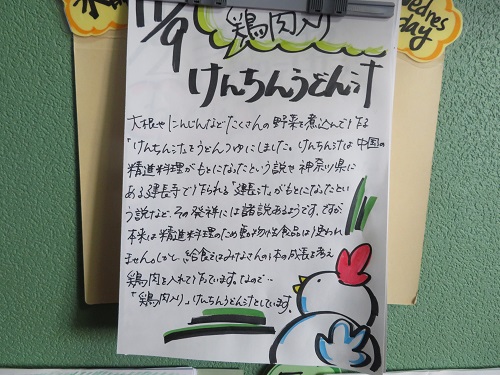 11/9
鶏肉入り
けんちんうどん汁
大根やにんじんなどたくさんの野菜を煮込んで作る
「けんちん汁」をうどんつゆにしました。けんちん汁は中国の
精進料理がもとになったという説や神奈川県に
ある建長寺で作られる「建長汁」がもとになったとい
う説など、その発祥には諸説あるようです。ですが、
本来は精進料理のため動物性食品は使われ
ません。しかし、給食ではみなさんの体の成長を考え
鶏肉を入れて作っています。なので…
「鶏肉入り」けんちんうどん汁としています。
Wednes
day